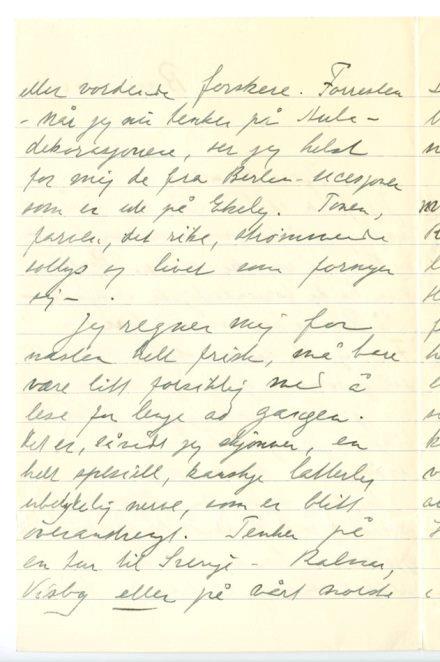 eller vordende forskere. Forresten
– når jeg nu tenker på Aula-
dekorasjonene, ser jeg helst
for mig de fra Berlin-secesjonen
som er ute på Ekely. Tonen,
farven, det rike, strømmende
sollys og livet som fornyer
sig – .
Jeg regner mig for
næsten helt frisk, må bare
være litt forsiktig med å
lese for lenge ad gangen.
Det er, såvidt jeg skjønner, en
helt spesiell, kanskje latterlig
ubetydelig nerve, som er blitt
overanstrengt. Tenker på
en tur til Sverige – Kalmar,
Visby eller på vårt norske